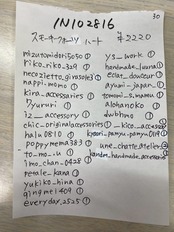 30
IN102816
スモーキークォーツ ハート ¥2220
mizutomidori5050 ①
riko.riko.329 ①
necozietto_girasole3 ①
nappi.mono ①
kira_accessaries ①
7yururi ①
iz__accessory ①
chic_originalaccessories ①
halu0810 ①
poppymema383 ①
to_mo_u ①
imo_chan_0428 ①
petale_kana ①
yukiko_hina ①
qingmei409 ①
everyday_2525 ①
ys_work ①
handmade_luuna ①
eclat_douceur ①
ayumi_japan ①
tomomi_s.mama ①
alohanoka ①
dwbhmo ①
_kico_accessory ①
kyaori_panyu.panyu_0196 ①
une_chatte.atelier ②
kandre_handmade_accessories ①